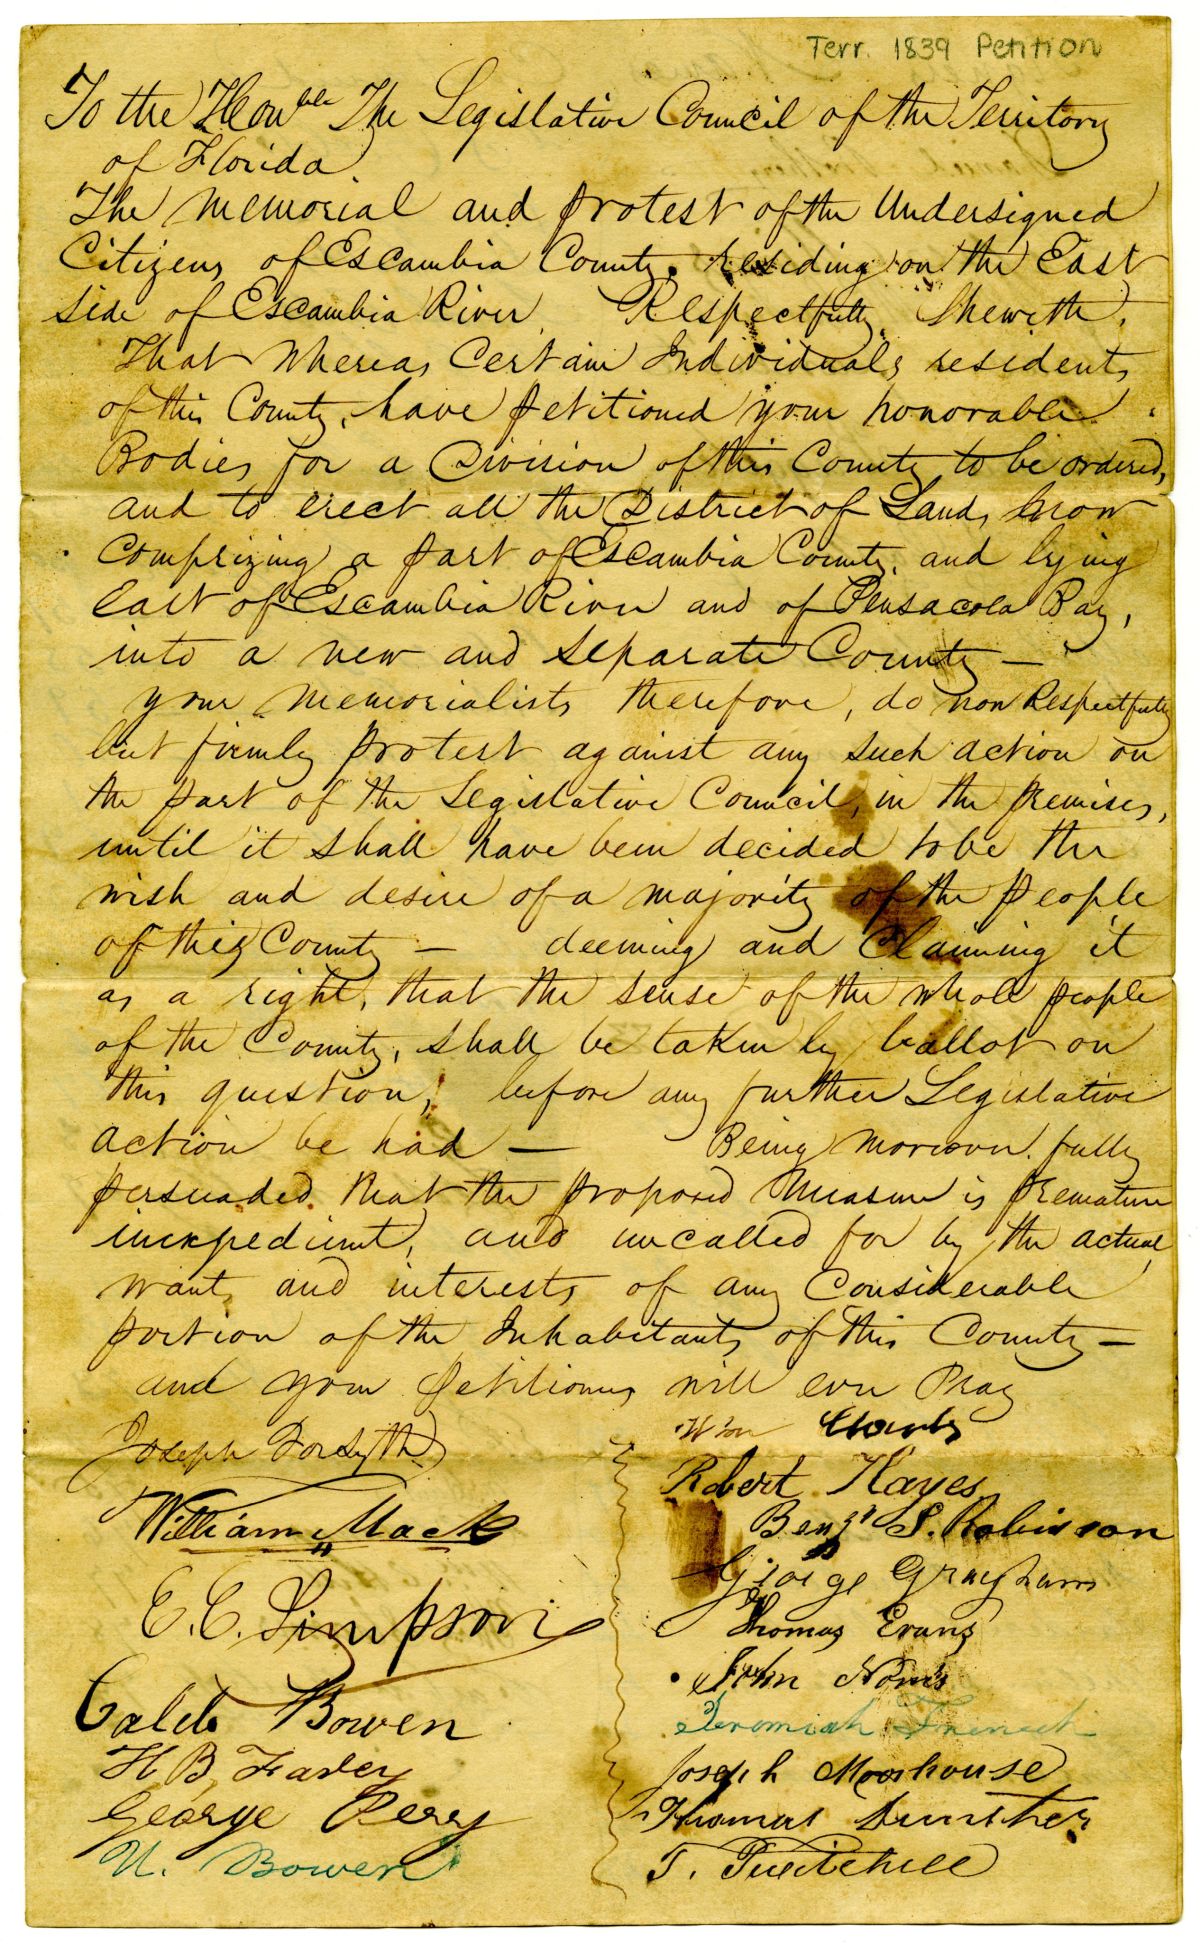 Terr. 1839 Petition
To the Honble The Legislative Council of the Territory
of Florida.
The Memorial and protest of the Undersigned
Citizens of Escambia County, residing on the East
side of Escambia River, Respectfully Sheweth,
That Whereas Certain Individuals residents
of this County, have petitioned your honorable
Bodies for a Division of this County to be ordered,
and to erect all the District of Lands, know
Comprizing a part of Escambia County, and lying
East of Escambia River and of Pensacola Bay,
into a new and separate County —
your Memorialists therefore, do now Respectfully
but firmly protest against any such action on
the part of the Legislative Council, in the premises,
until it shall have been decided to be the
wish and desire of a majority of the people
of this County — deeming and Claiming it
as a right, that the sense of the whole people
of the County, shall be taken by ballot on
this question, before any further Legislative
action be had — Being moreover fully
persuaded that the proposed Measure is premature
inexpedient, and uncalled for by the actual
wants and interests of any Considerable
portion of the Inhabitants of this County —
and your petitioners will ever Pray
Joseph Forsyth
William Mack
E. E. Simpson
Caleb Bowen
H B
George Perry
U. Bowen
Wm
Robert Hayes
Benjn S. Robinson
George
Thomas Evans
John
Jeromiah
Joseph Moorhouse
Thomas
T. Twitchell